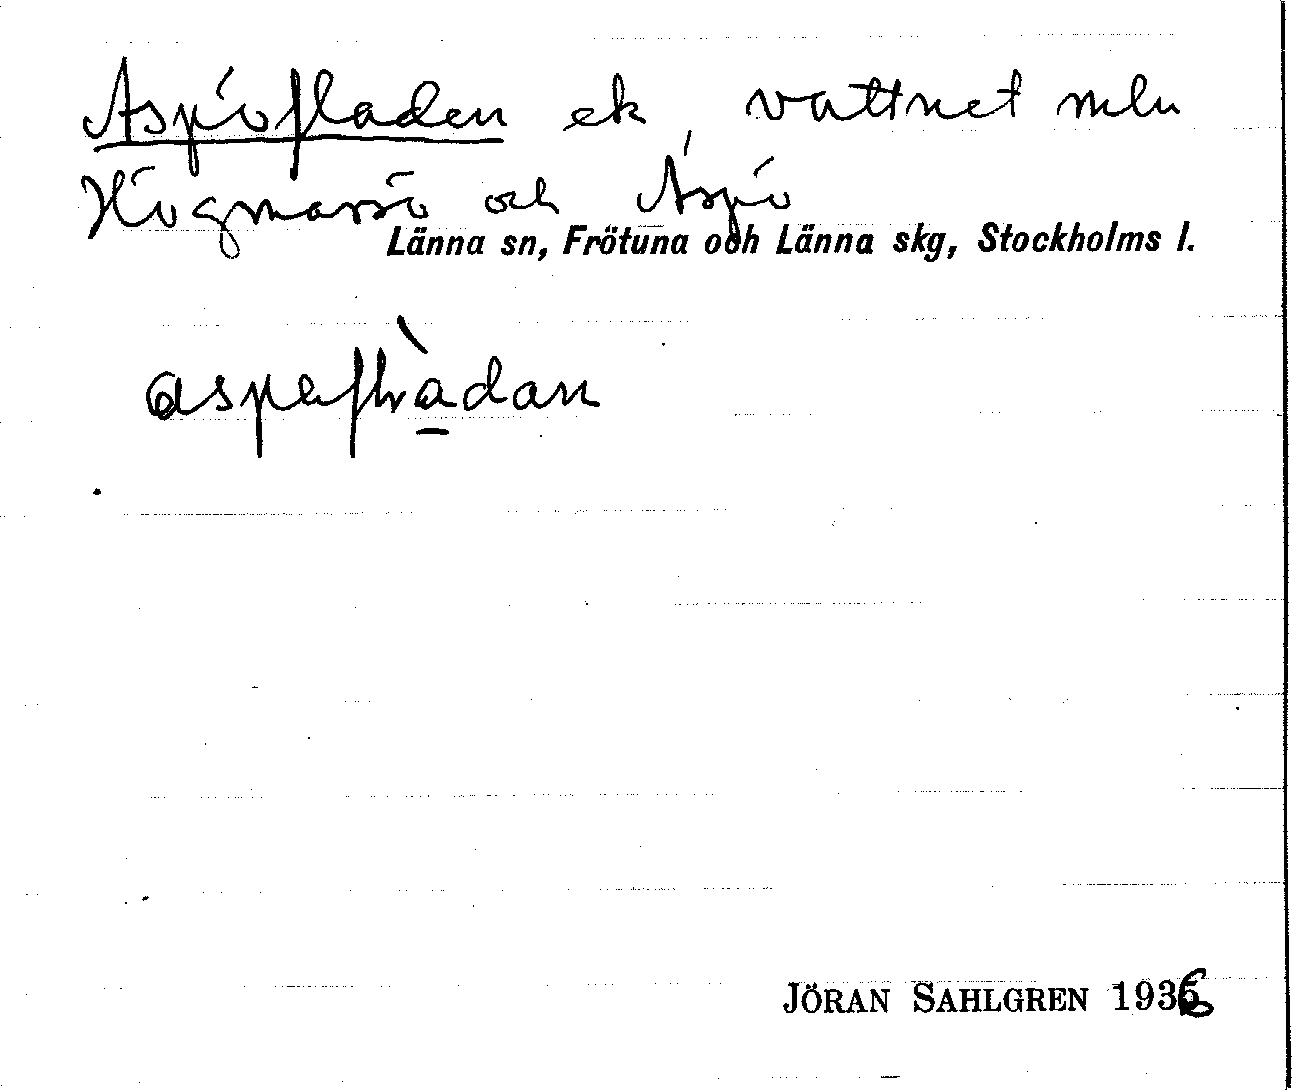 Aspöfladen ek, vattnet mln
Högmarsö och Aspö
Länna sn, Frötuna och Länna skg, Stockholms l.
JÖRAN SAHLGREN 1936